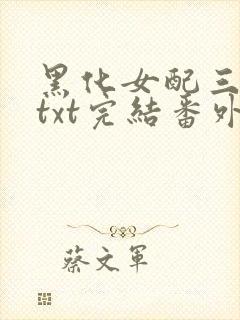 黑化女配三
txt完结番外
蔡文军